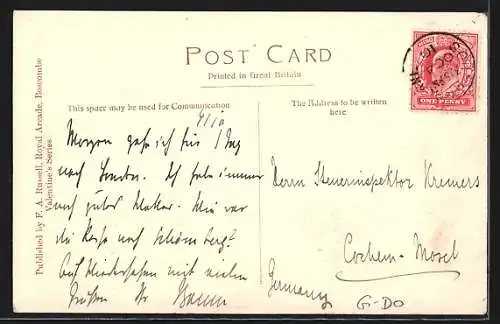 POST CARD
Printed in Great Britain
This space may be used for Communication
The Address to be written
here
Published by F. A. Russell, Royal Arcade, Boscombe
Valentine's Series
ONE PENNY
4/10
Morgen gehe ich für 1 Tag
nach London. Ich habe immer
noch gutes Wetter. Wie war
die Reise nach Schömberg?
Auf Wiedersehen mit vielen
Grüßen Ihr
Herrn Steuerinspektor Kremers
Cochem-Mosel
Germany
G-DO